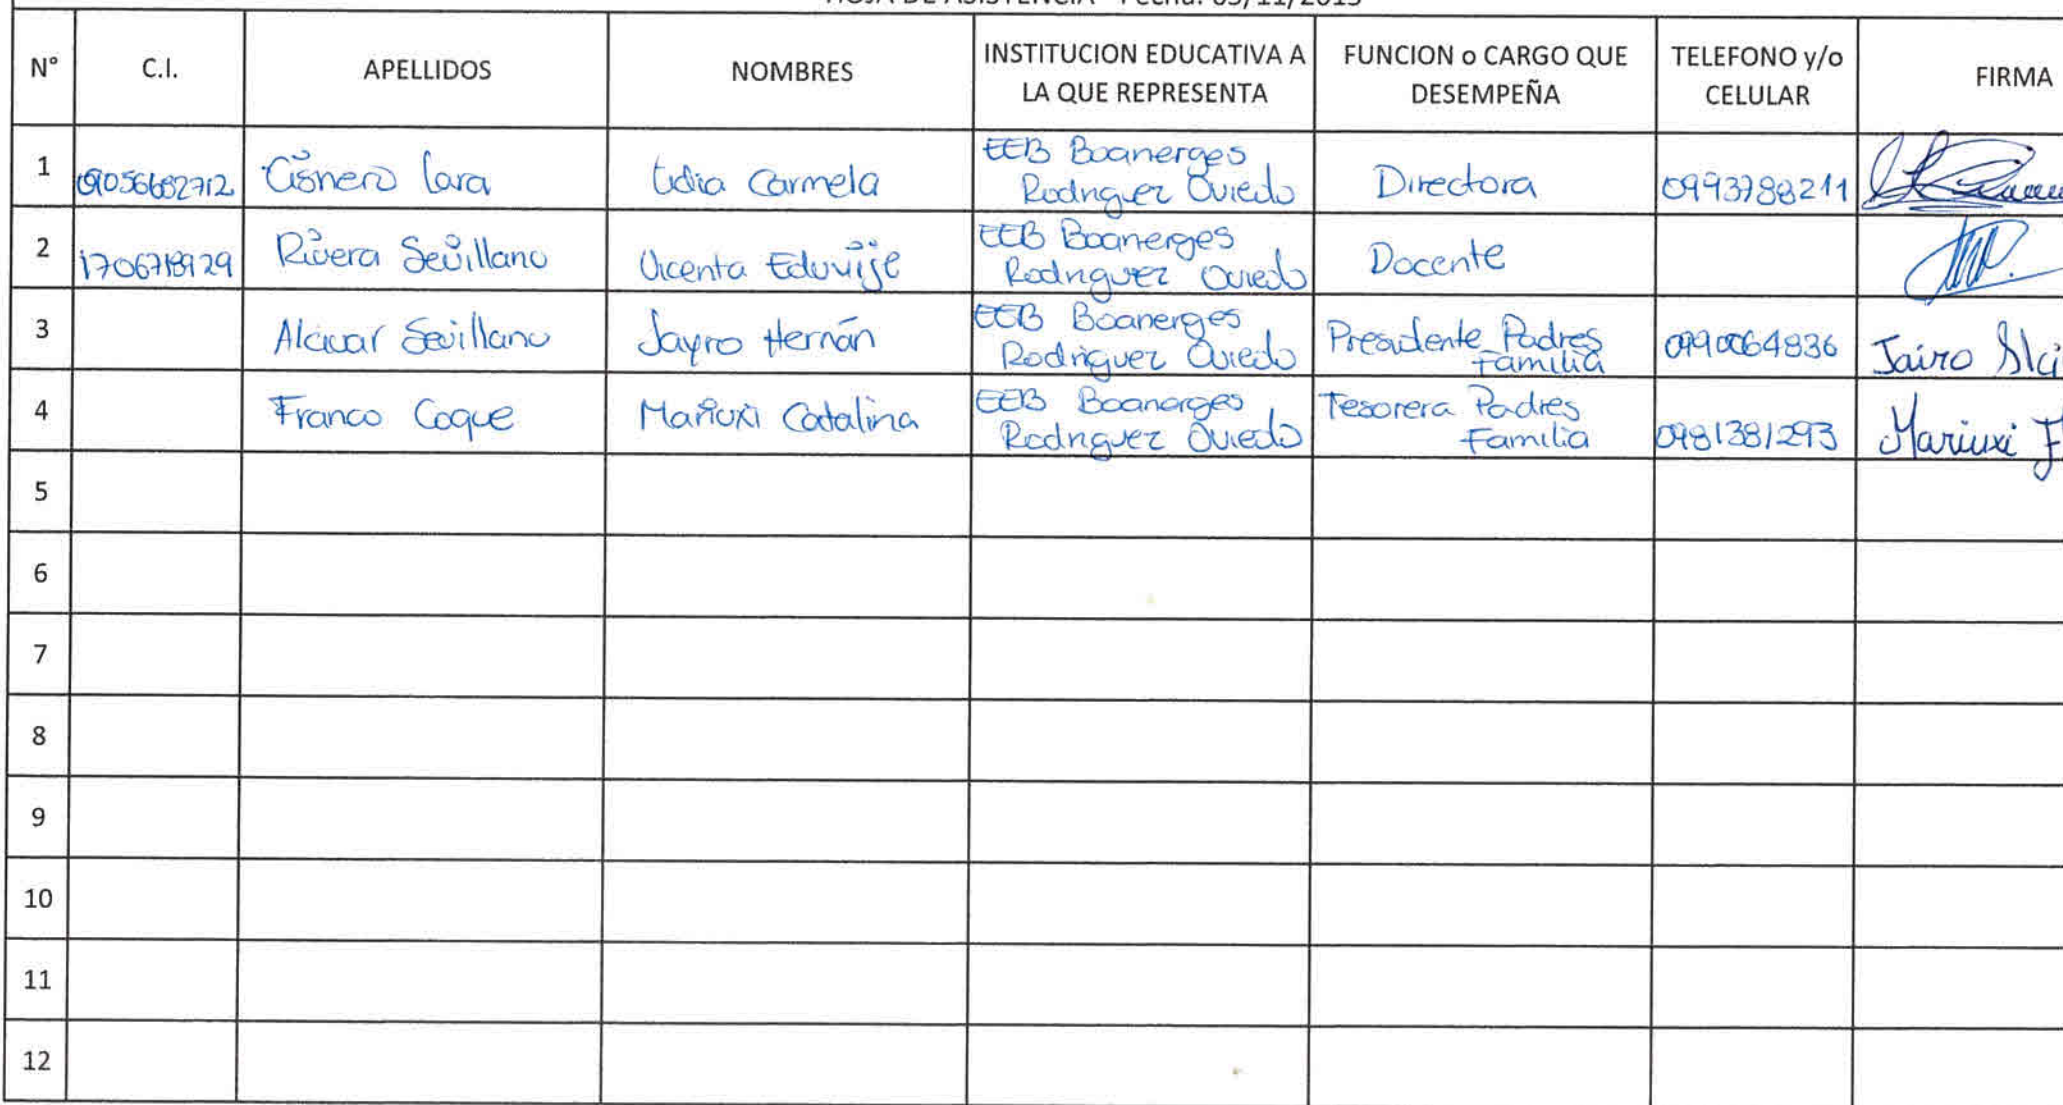 HOJA DE ASISTENCIA - Fecha: 05/11/2015
N° C.I. APELLIDOS NOMBRES INSTITUCION EDUCATIVA A LA QUE REPRESENTA FUNCION o CARGO QUE DESEMPEÑA TELEFONO y/o CELULAR FIRMA
1 Cisnero Lara Lidia Carmela EEB Boanerges Rodriguez Oviedo Directora 0993788211
2 1706718929 Rivera Sevillano Vicenta Eduvije EEB Boanerges Rodriguez Oviedo Docente
3 Alcivar Sevillano Jayro Hernán EEB Boanerges Rodriguez Oviedo Presidente Padres Familia 0990064836 Jairo Alci
4 Franco Coque Mariuxi Catalina EEB Boanerges Rodriguez Oviedo Tesorera Padres Familia 0981381293 Mariuxi F
5
6
7
8
9
10
11
12